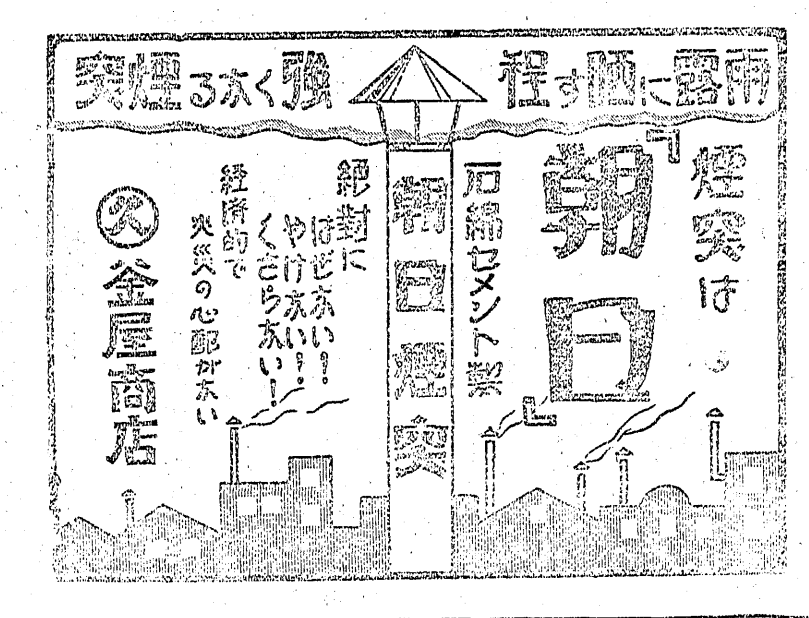 雨露に晒す程
強くなる煙突
煙突は
『朝日』
石綿セメント製
朝日煙突
絶対に
はぜない?
やけない?
くさらない!
経済的で
火災の心配がない
久
釜屋商店